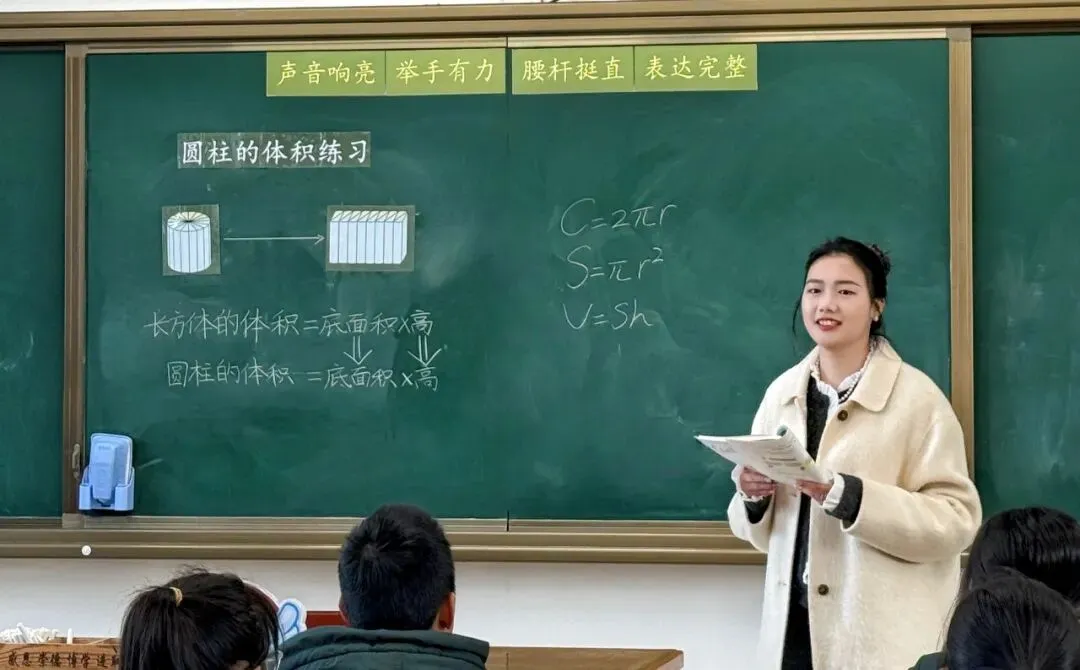 声音响亮 举手有力 腰杆挺直 表达完整
圆柱的体积练习
长方体的体积=底面积×高
圆柱的体积=底面积×高
C=2πr
S=πr²
V=Sh